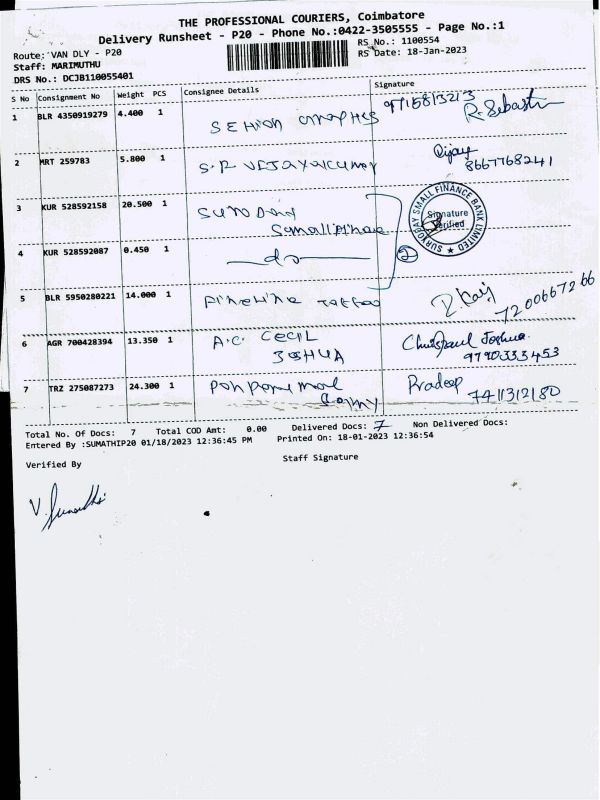 THE PROFESSIONAL COURIERS, Coimbatore
Delivery Runsheet - P20 - Phone No.:0422-3505555 - Page No.:1
Route: VAN DLY - P20
RS No.: 1100554
Staff: MARIMUTHU
RS Date: 18-Jan-2023
DRS No.: DCJB110055401
S No Consignment No Weight PCS Consignee Details Signature
1 BLR 4350919279 4.400 1 9715813213 R. Sebastin
2 MRT 259783 5.800 1 S.R VIJAYAKUMAR Vijay 8667768241
3 KUR 528592158 20.500 1
SURYODAY SMALL FINANCE BANK LIMITED
Signature
Verified
4 KUR 528592087 0.450 1 —do— 2
5 BLR 5950280221 14.000 1 Pineline Tattoo 7200667266
6 AGR 700428394 13.350 1 A.C. CECIL
JOSHUA
Joshua
9790333453
7 TRZ 275087273 24.300 1 Pradeep 7411312180
Total No. Of Docs: 7 Total COD Amt: 0.00 Delivered Docs: 7 Non Delivered Docs:
Entered By :SUMATHIP20 01/18/2023 12:36:45 PM Printed On: 18-01-2023 12:36:54
Verified By Staff Signature